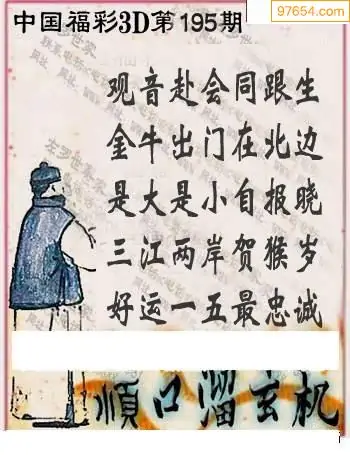 97654.com
中国福彩3D第195期
观音赴会同跟生
金牛出门在北边
是大是小自报晓
三江两岸贺猴岁
好运一五最忠诚
順口溜玄机